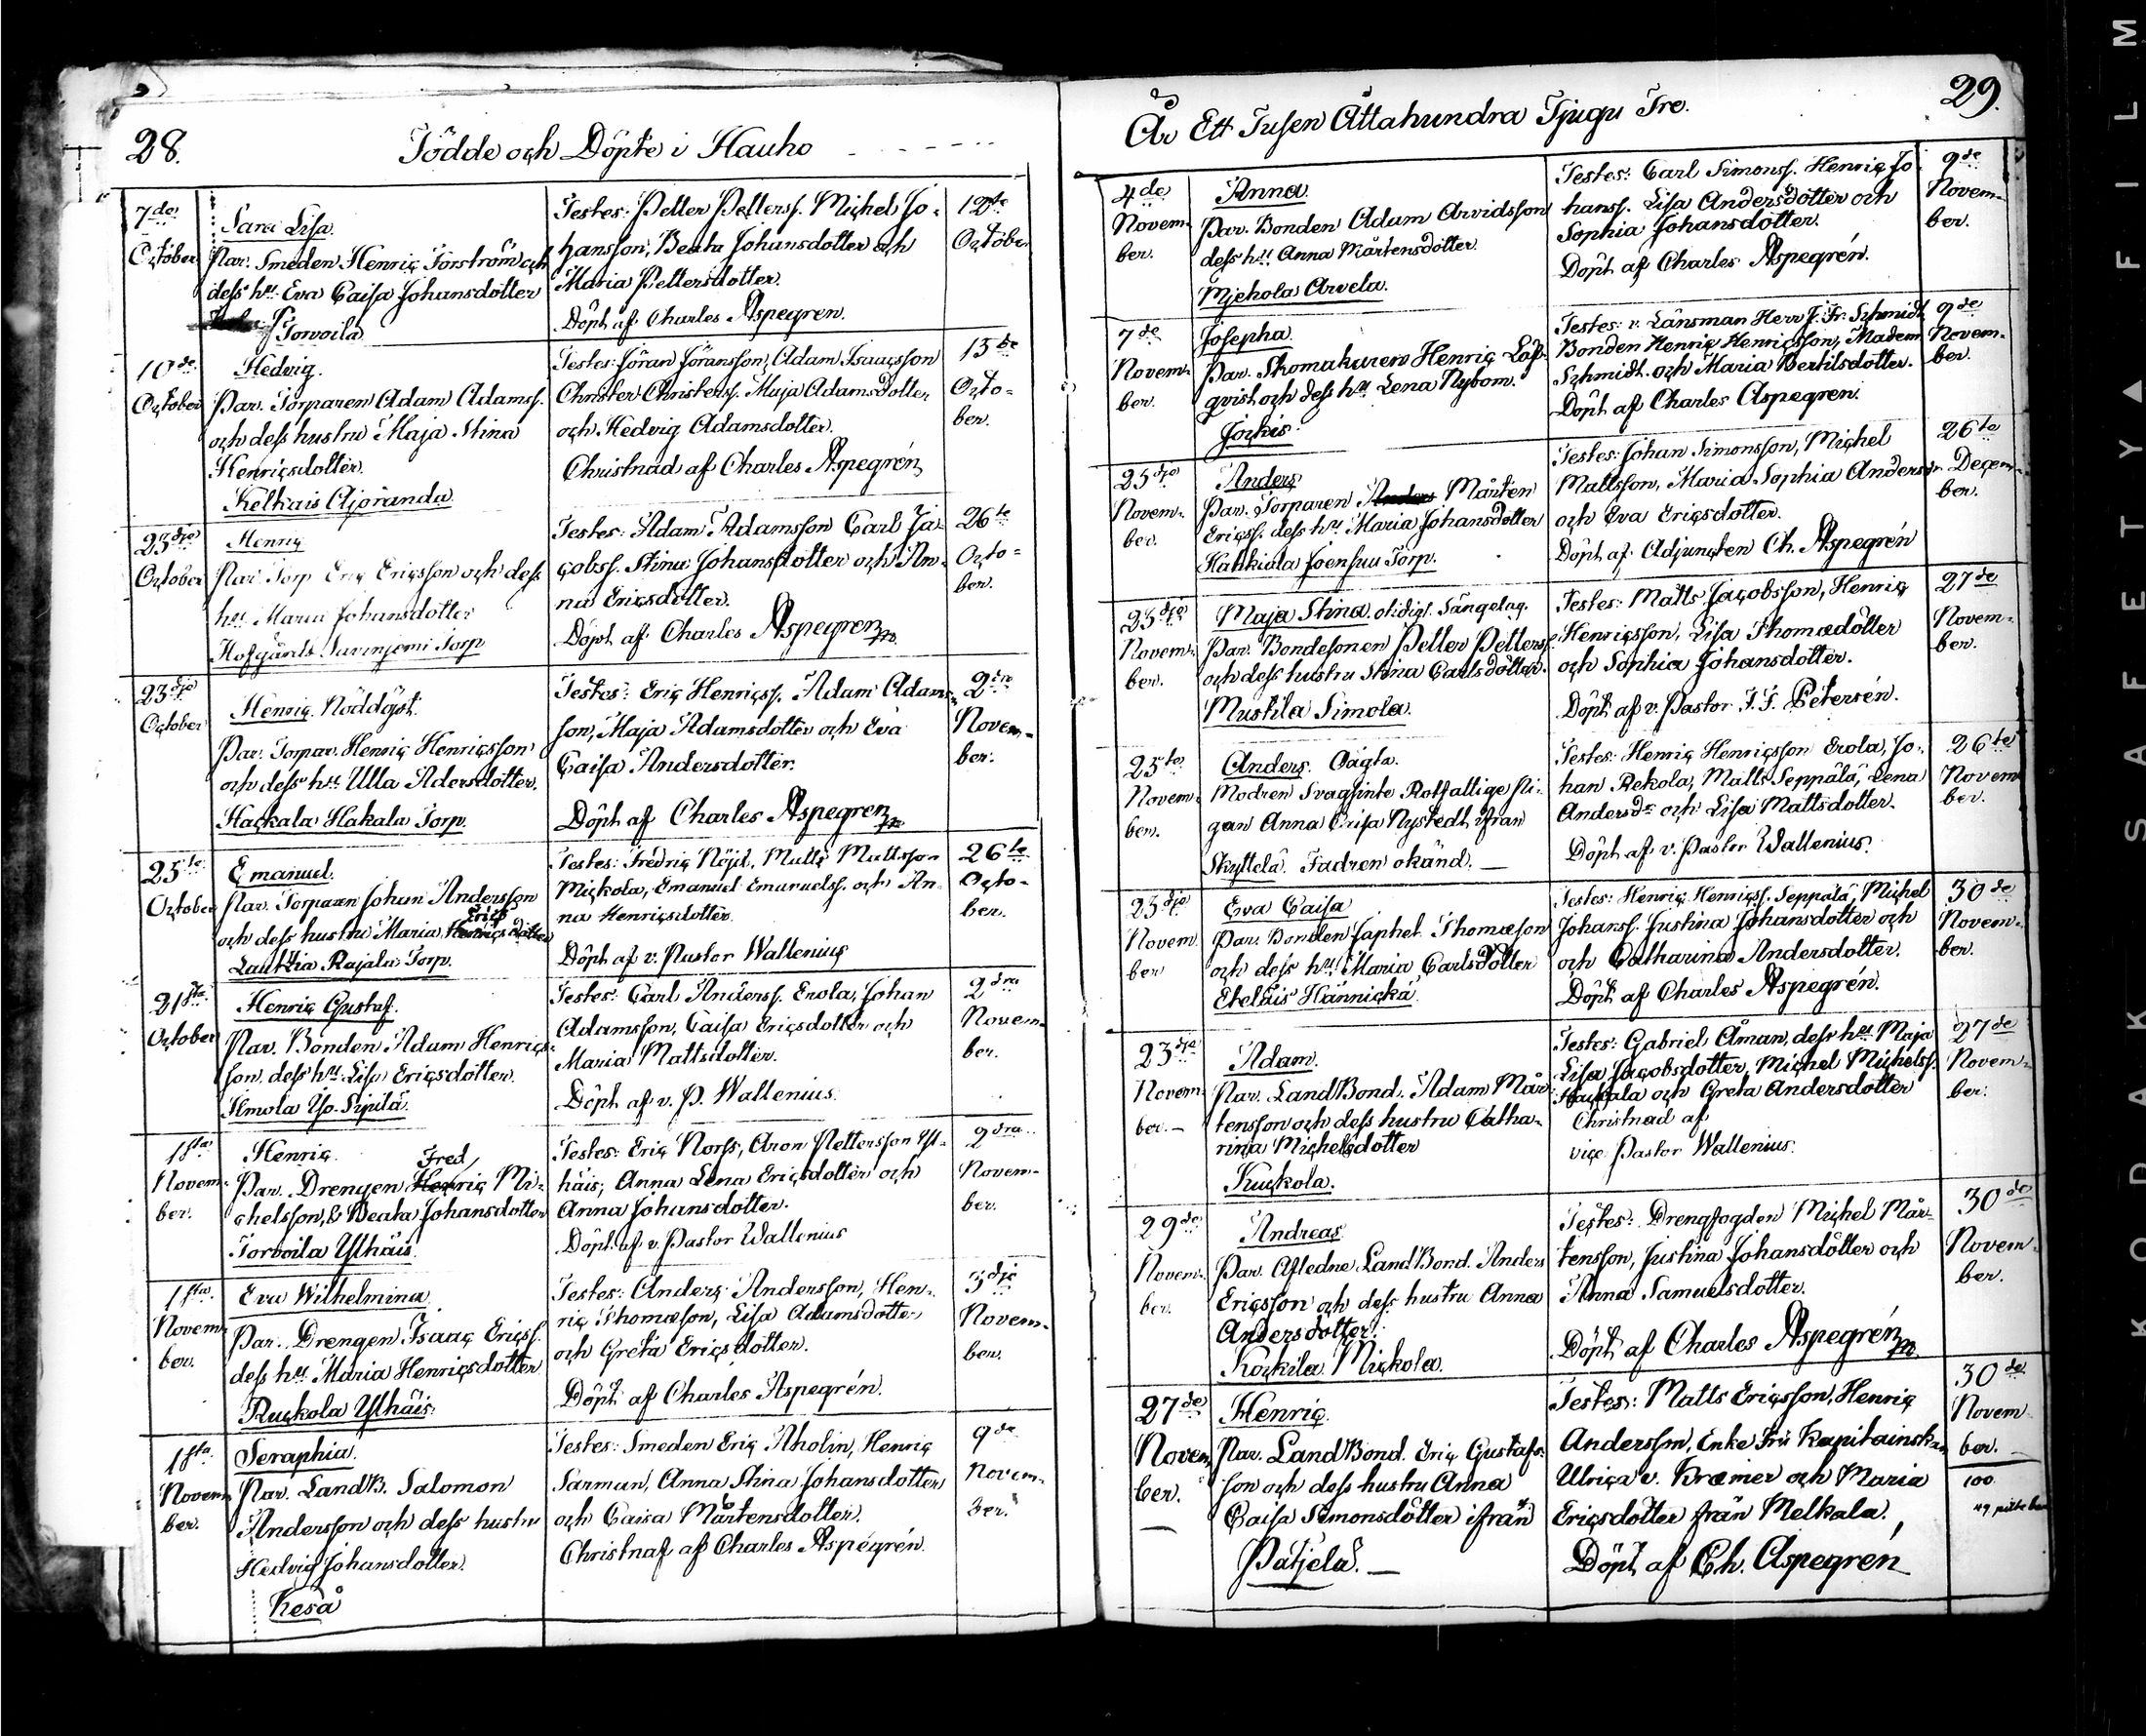 28.
Födde och Döpte i Hauho
7de
October
Sara Lisa.
Par. Smeden Henric Forström och
dess hu. Eva Caisa Johansdotter
Torvoila
Testes: Petter Petterss. Michel Jo-
hansson, Beata Johansdotter och
Maria Pettersdotter.
Döpt af Charles Aspegren.
12te
October
10de
October
Hedvig.
Par. Torparen Adam Adamss.
och dess hustru Maja Stina
Henricsdotter.
Kelkais Ajoranda
Testes: Jöran Jöransson, Adam Isaacsson
Christer Christerss. Maja Adams Dotter
och Hedvig Adamsdotter.
Christnad af Charles Aspegrén
13de
Octo-
ber.
23dje
October
Henric
Par. Torp Eric Ericsson och dess
hu. Maria Johansdotter
Hofgårds Torp
Testes: Adam Adamsson Carl Ja-
cobss. Stina Johansdotter och An-
na Ericsdotter.
Döpt af Charles Aspegren
26te
Octo-
ber.
23dje
October
Henric. Nöddöpt.
Par. Torpar. Henric Henricsson
och dess hu. Ulla Adersdotter.
Hackala Hakala Torp.
Testes: Eric Henricss. Adam Adams-
son, Maja Adamsdotter och Eva
Caisa Andersdotter.
Döpt af Charles Aspegren
2dra
Novem-
ber.
25te
October
Emanuel.
Par. Torparen Johan Andersson
och dess hustru Maria Erics Dotter
Lauttia Rajala Torp.
Testes: Fredric Nöjd, Matts Mattsson
Mickola, Emanuel Emanuelss. och An-
na Henricsdotter
Döpt af v. Pastor Wallenius
26te
Octo-
ber.
21sta
October
Henric Gustaf.
Par. Bonden Adam Henrics-
son, dess hu. Lisa Ericsdotter.
Ilmola Yp. Sipilä.
Testes: Carl Anderss. Erola, Johan
Adamsson, Caisa Ericsdotter och
Maria Mattsdotter.
Döpt af v. P. Wallenius.
2dra
Novem-
ber.
1sta
Novem-
ber.
Henric.
Par. Drengen Fred Henric Mi-
chelsson, & Beata Johansdotter
Torvoila Ylhäis.
Testes: Eric Norss, Aron Pettersson Yl-
häis, Anna Lena Ericsdotter och
Anna Johansdotter.
Döpt af v. Pastor Wallenius
2dra
Novem-
ber.
1sta
Novem-
ber.
Eva Wilhelmina.
Par. Drengen Isaac Ericss.
dess hu. Maria Henricsdotter
Ruckola Ylhäis.
Testes: Anders Andersson, Hen-
ric Thomæson, Lisa Adamsdotter
och Greta Ericsdotter.
Döpt af Charles Aspegrén.
3dje
Novem-
ber.
1sta
Novem-
ber.
Seraphia.
Par. LandB. Salomon
Andersson och dess hustru
Hedvig Johansdotter.
Kesä
Testes: Smeden Eric Aholin, Henric
Sarman, Anna Stina Johansdotter
och Caisa Mårtensdotter.
Christnaf af Charles Aspegrén.
9de
Novem-
ber.
29.
År Ett Tusen Åttahundra Tjugu Tre.
4de
Novem-
ber.
Anna.
Par. Bonden Adam Arvidsson
dess hu. Anna Mårtensdotter
Mjehola Arvela.
Testes: Carl Simonss. Henric Jo-
hanss. Lisa Andersdotter och
Sophia Johansdotter.
Döpt af Charles Aspegrén.
9de
Novem-
ber.
7de
Novem-
ber.
Josepha.
Par. Skomakaren Henric Löf-
qvist och dess hu. Lena Nybom.
Jockis
Testes: v. Länsman Herr J. Fr. Schmidt
Bonden Henric Henricsson, Madem
Schmidt och Maria Bertilsdotter.
Döpt af Charles Aspegren.
9de
Novem-
ber.
25dje
Novem-
ber.
Anders
Par. Torparen Mårten
Ericss. dess hu. Maria Johansdotter
Hahkiala Joensuu Torp.
Testes: Johan Simonsson, Michel
Mattsson, Maria Sophia Anders
och Eva Ericsdotter.
Döpt af Adjuncten Ch. Aspegrén
26te
Decem-
ber.
23dje
Novem-
ber.
Maja Stina. otidigt Sängelag.
Par. Bondesonen Petter Petterss.
och dess hustru Stina Carlsdotter.
Mustila Simola.
Testes: Matts Jacobsson, Henric
Henricsson, Lisa Thomædotter
och Sophia Johansdotter.
Döpt af v. Pastor J. J. Petersén.
27de
Novem-
ber.
25te
Novem-
ber.
Anders. Oägta.
Modren Svagsinte Rotfattige Pi-
gan Anna Crisa Nystedt ifrån
Skyttelä. Fadren okänd. —
Testes: Henric Henricsson Erola, Jo-
han Rekola, Matts Seppälä, Lena
Andersdr och Lisa Mattsdotter.
Döpt af v. Pastor Wallenius.
26te
Novem
ber.
23dje
Novem
ber
Eva Caisa
Par. Bonden Japhet Thomæson
och dess hu. Maria Carlsdotter
Eteläis Hännickä
Testes: Henric Henricss. Seppälä, Michel
Johanss. Justina Johansdotter och
och Catharina Andersdotter.
Döpt af Charles Aspegrén.
30de
Novem-
ber.
23dje
Novem-
ber. —
Adam.
Par. LandBond. Adam Mår-
tensson och dess hustru Catha-
rina Michelsdotter
Kuckola.
Testes: Gabriel Åman, dess hu. Maja
Lisa Jacobsdotter, Michel Michelss.
och Greta Andersdotter
Christnad af
vice Pastor Wallenius.
27de
Novem-
ber.
29de
Novem-
ber.
Andreas.
Par. Afledne LandBond. Anders
Ericsson och dess hustru Anna
Andersdotter.
Kockila Mickola.
Testes: Drengfogden Michel Mår-
tensson, Justina Johansdotter och
Anna Samuelsdotter.
Döpt af Charles Aspegrén
30de
Novem-
ber.
27de
Novem
ber.
—
Henric.
Par. LandBond. Eric Gustafs-
son och dess hustru Anna
Caisa Simonsdotter ifrån
Patjela. —
Testes: Matts Ericsson, Henric
Andersson, Enke Fru Kapitainskan
Ulrica v. Kræmer och Maria
Ericsdotter från Melkala.
Döpt af Ch. Aspegrén
30de
Novem
ber. —
100
KODAK SAFETY ▲ FILM